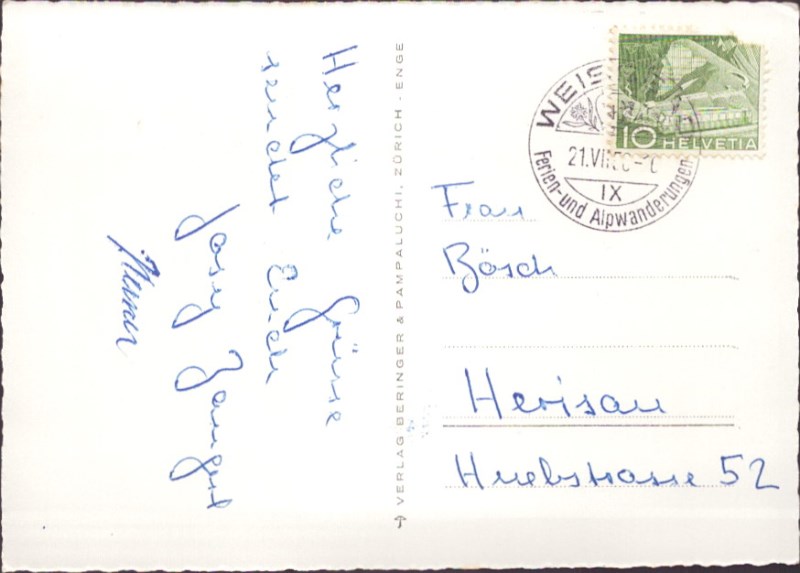 Herzliche Grüsse
sendet Euch
Josef
VERLAG BERINGER & PAMPALUCHI, ZÜRICH - ENGE
WEIS
21.VII
IX
Ferien- und Alpwanderungen
10 HELVETIA
Frau
Bösch
Herisau
Huebstrasse 52